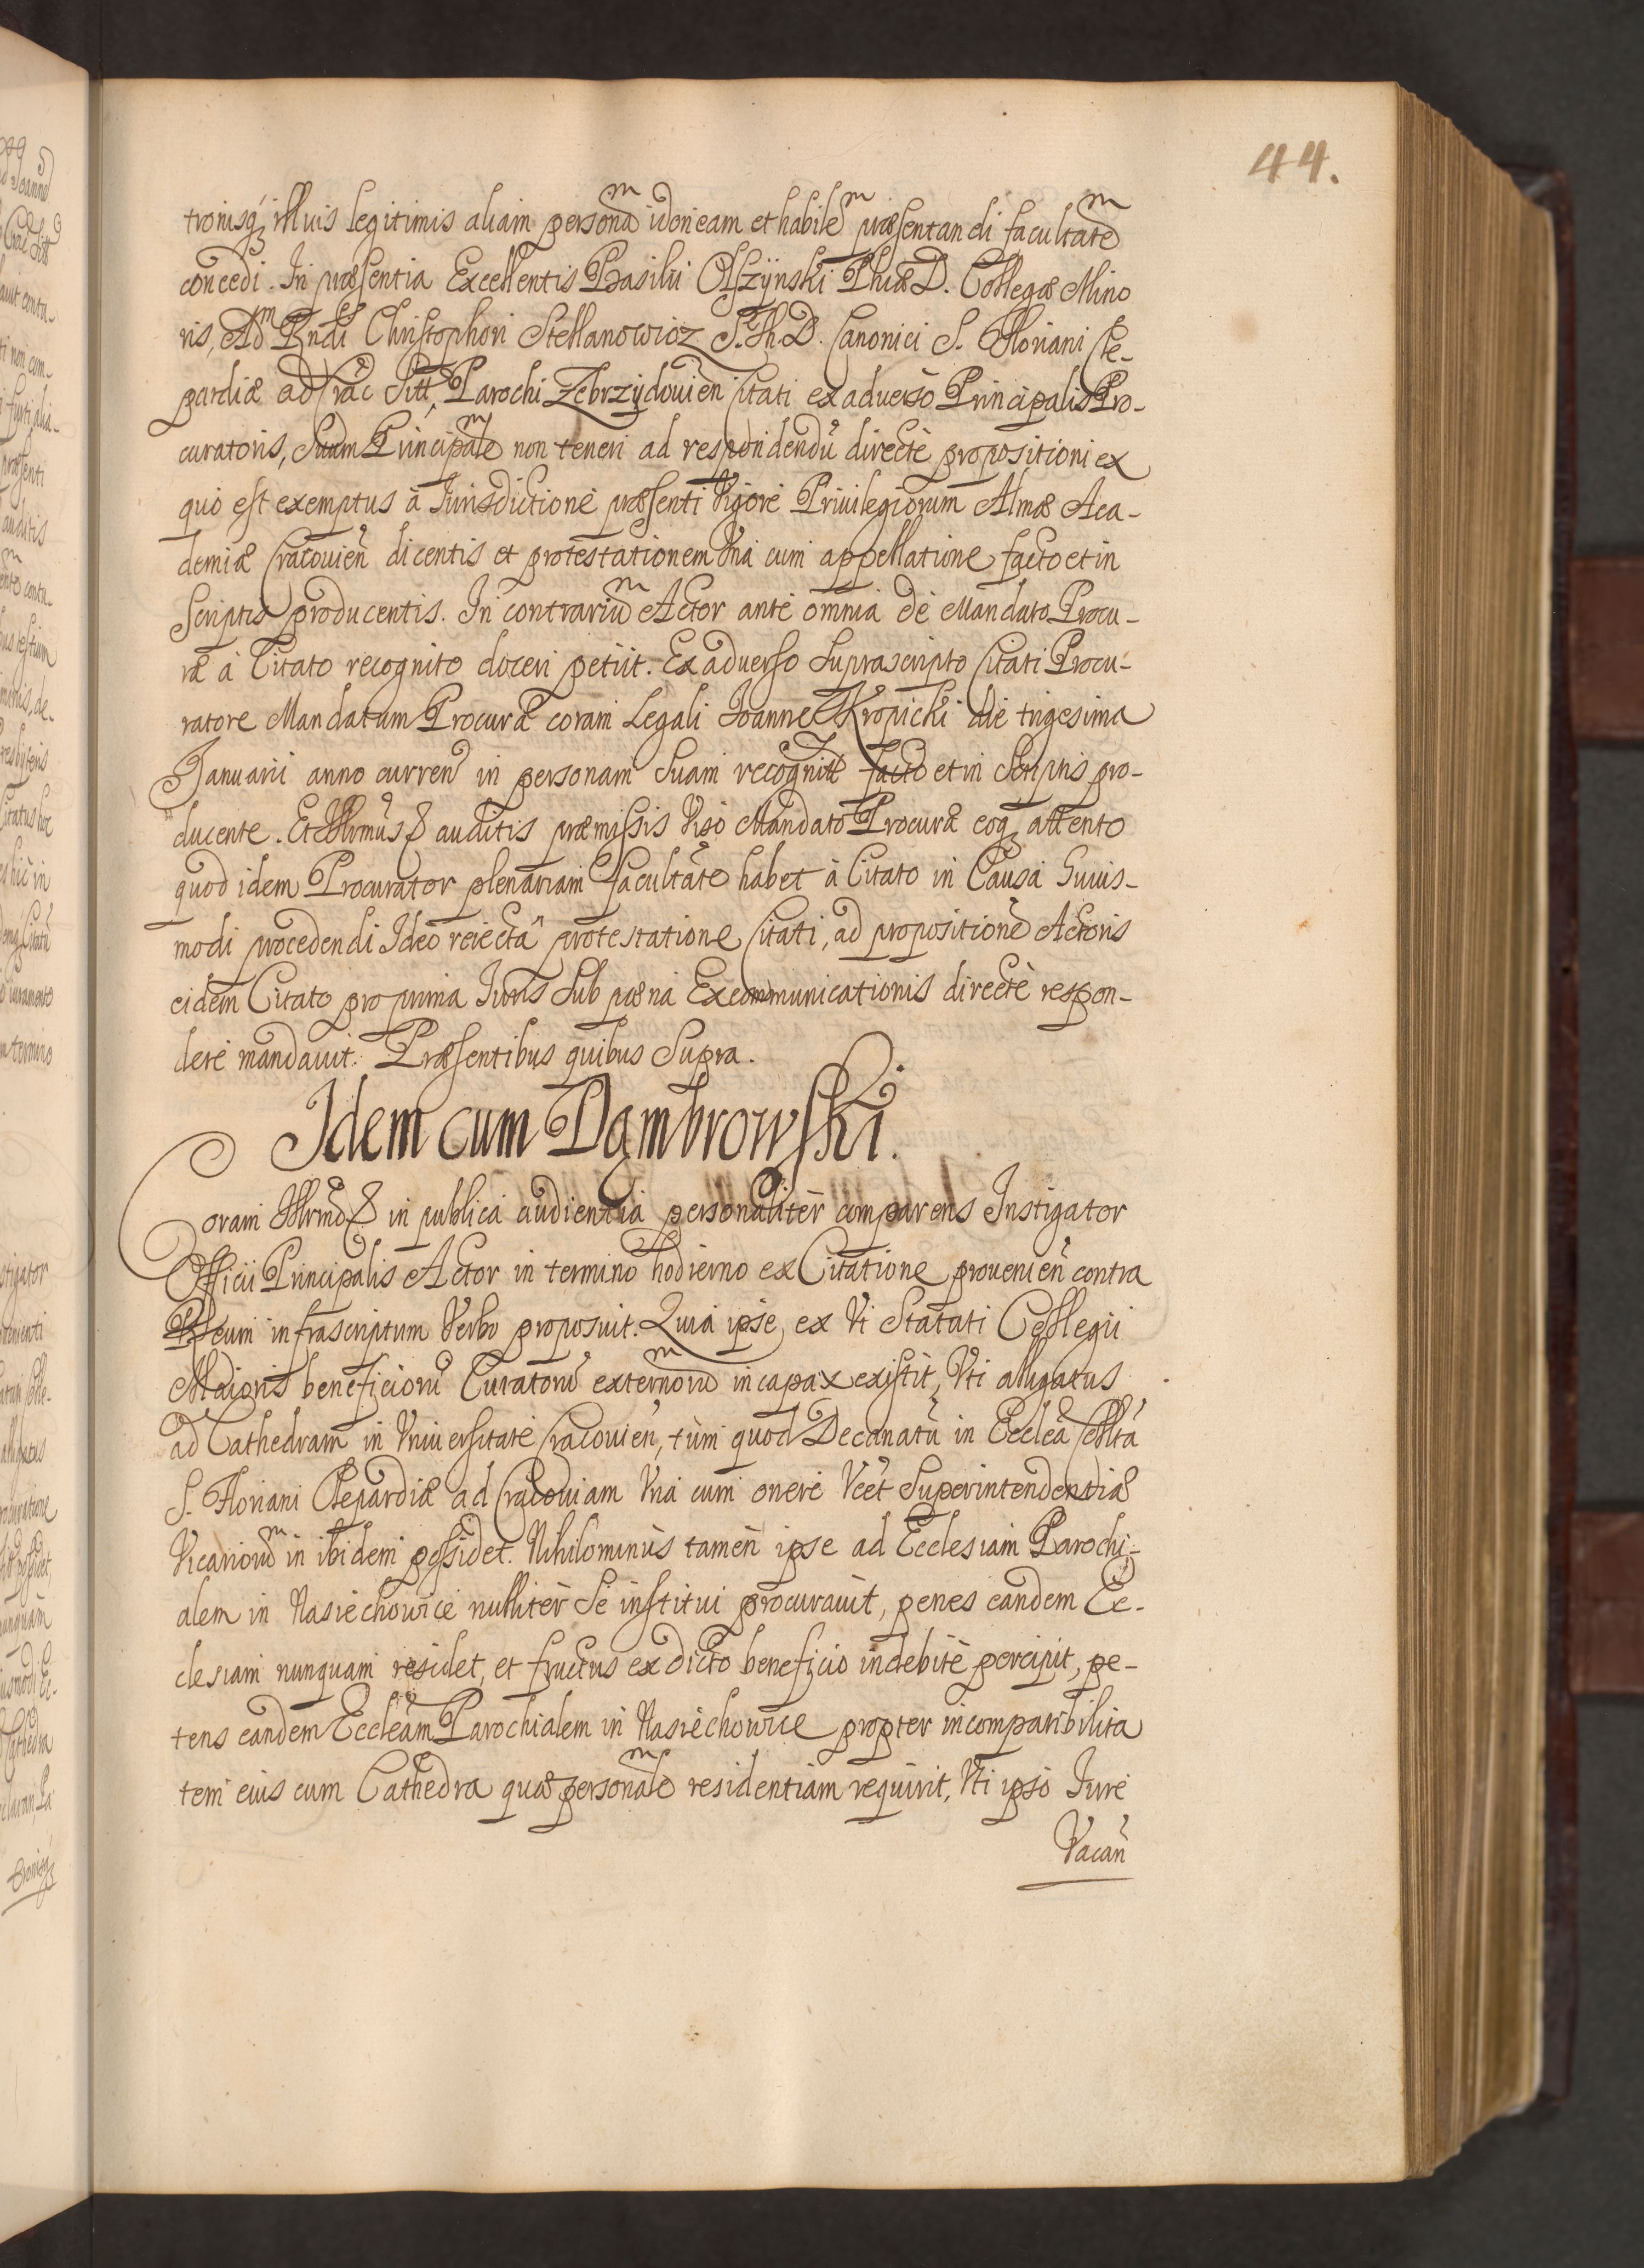 44.
tronisq; illius legitimis aliam personam idoneam et habilem præsentandi facultatem
concedi. In præsentia Excellentis Basilii Olszynski Phiæ D. Collegæ Mino
ris, Adm Rndi Christophori Stellanowicz S. Th. D. Canonici S. Floriani Cle-
pardiæ ad Crac Sitt, Parochi Zebrzydovien Citati ex adverso Principalis Pro-
curatoris, Suum Principalem non teneri ad respondendū directè propositioni ex
quo est exemptus à Iurisdictione præsenti Vigore Privilegiorum Almæ Aca-
demiæ Cracovien dicentis et protestationem Vnà cum appellatione facto et in
Scriptis producentis. In contrarium Actor ante omnia de Mandato Procu-
ræ à Citato recognito doceri petiit. Ex adverso Suprascripto Citati Procu-
ratore Mandatum Procuræ coram Legali Joanne Kropicki die trigesima
Januarii anno curren in personam Suam recognitt facto et in Scriptis pro-
ducente. Et Illrmus & auditis præmissis Viso Mandato Procuræ eoq; attento
quod idem Procurator plenariam facultatē habet à Citato in Causa huius-
modi procedendi Ideo reiectâ protestatione Citati, ad propositionē Actoris
eidem Citato pro prima Iuris Sub pæna Excommunicationis directè respon-
dere mandavit. Præsentibus quibus Supra.
Idem cum Dąmbrowski.
Coram Illrmo & in publica audientia personalitèr comparens Instigator
Officii Principalis Actor in termino hodierno ex Citatione provenien contra
Reum infrascriptum Verbo proposuit. Quia ipse, ex Vi Statuti Collegii
Maioris beneficiorū Curatorū externorum incapax existit, Vti alligatus
ad Cathedram in Vniversitate Cracovien, tùm quod Decanatū in Ecclea Collta
S. Floriani Clepardiæ ad Cracoviam Vnà cum onere Vcet Superintendentiæ
Vicariorum in ibidem possidet. Nihilominùs tamen ipse ad Ecclesiam Parochi-
alem in Nasiechowice nullitèr Se institui procuravit, penes eandem Ec-
clesiam nunquam residet, et fructus ex dicto beneficio indebitè percipit, pe-
tens eandem Eccleam Parochialem in Nasiechowice propter incompatibilita
tem eius cum Cathedra quæ personalem residentiam requirit, Vti ipso Iure
Vacan